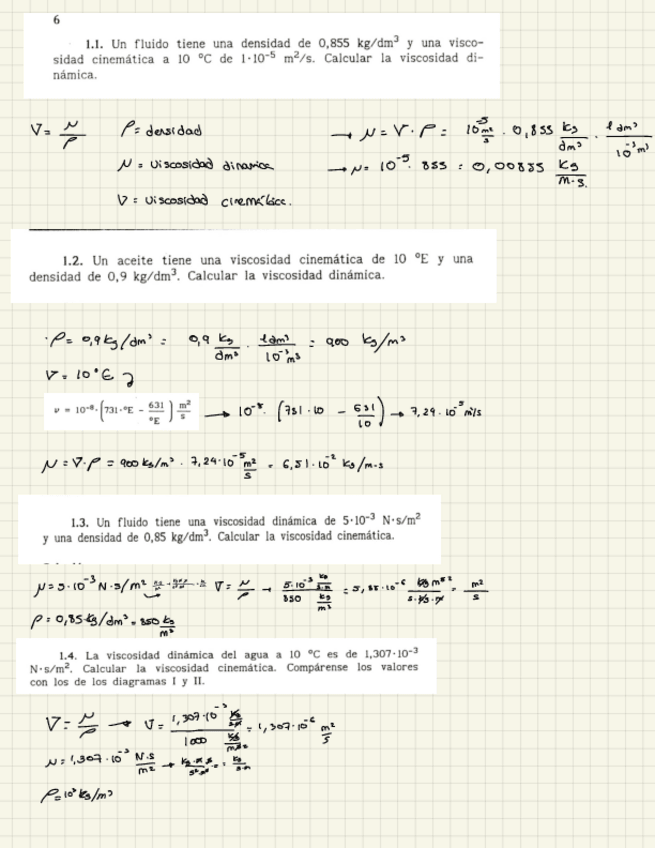 6
1.1. Un fluido tiene una densidad de 0,855 kg/dm³ y una visco-
sidad cinemática a 10 °C de 1·10⁻⁵ m²/s. Calcular la viscosidad di-
námica.
V = μ/ρ ρ = densidad → μ = V·ρ = 10⁻⁵ m²/s · 0,855 kg/dm³ · 1 dm³/10⁻³ m³
μ = Viscosidad dinamica → μ = 10⁻⁵ · 855 = 0,00855 kg/m·s
V = Viscosidad cinemática.
1.2. Un aceite tiene una viscosidad cinemática de 10 °E y una
densidad de 0,9 kg/dm³. Calcular la viscosidad dinámica.
· ρ = 0,9 kg/dm³ = 0,9 kg/dm³ · 1 dm³/10⁻³ m³ = 900 kg/m³
V = 10°E
ν = 10⁻⁸ · (731·°E − 631/°E) m²/s → 10⁻⁸ · (731·10 − 631/10) → 7,24·10⁻⁵ m²/s
μ = V·ρ = 900 kg/m³ · 7,24·10⁻⁵ m²/s = 6,51·10⁻² kg/m·s
1.3. Un fluido tiene una viscosidad dinámica de 5·10⁻³ N·s/m²
y una densidad de 0,85 kg/dm³. Calcular la viscosidad cinemática.
μ = 5·10⁻³ N·s/m² V = μ/ρ → 5·10⁻³ kg/s·m / 850 kg/m³ = 5,88·10⁻⁶ kg m³/s·kg·m = m²/s
ρ = 0,85 kg/dm³ = 850 kg/m³
1.4. La viscosidad dinámica del agua a 10 °C es de 1,307·10⁻³
N·s/m². Calcular la viscosidad cinemática. Compárense los valores
con los de los diagramas I y II.
V = μ/ρ → V = 1,307·10⁻³ kg/s·m / 1000 kg/m³ = 1,307·10⁻⁶ m²/s
μ = 1,307·10⁻³ N·s/m² → kg·m·s/s²·m² = kg/s·m
ρ = 10³ kg/m³